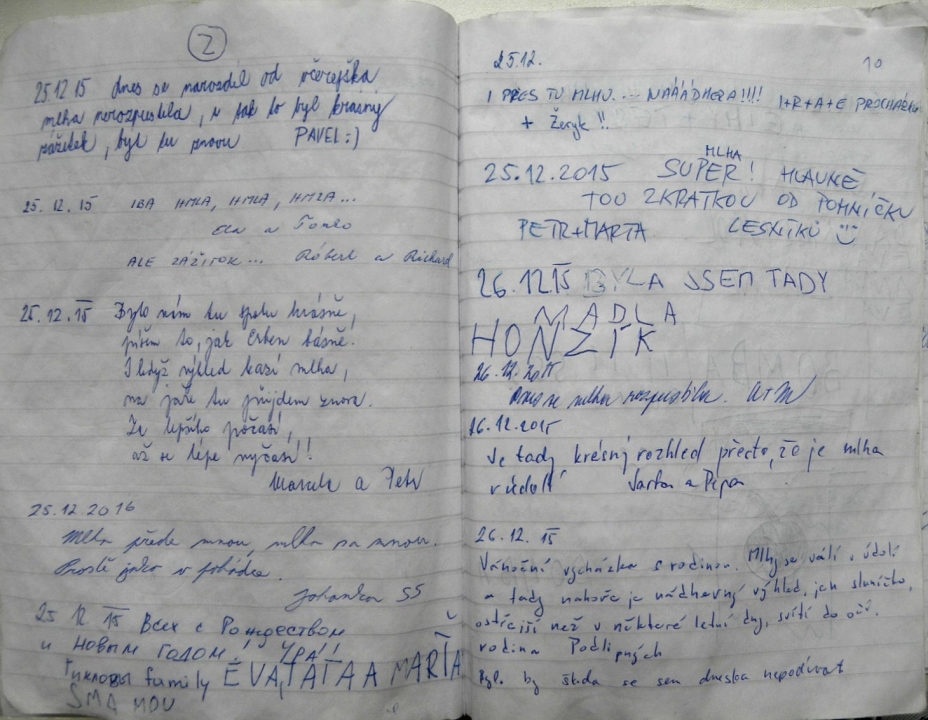 2
25.12 15 dnes se narozdíl od včerejška
mlha nerozpustila, i tak to byl krásný
zážitek, byl tu znovu PAVEL:)
25.12.15 IBA HMLA, HMLA, HMLA...
a Tomeo
ALE ZÁŽITOK... Róbert a Richard
25.12.15 Bylo nám tu spolu krásně,
píšem to, jak Erben básně.
I když výhled kazí mlha,
na jaře tu přijdem znova.
Za lepšího počasí,
až se lépe vyčasí!!
a Petr
25.12 2016
Mlha přede mnou, mlha za mnou.
Prostě jako v pohádce.
Johanka SS
25 12 15 Всех с Рождеством
и Новым годом! УРА!!
family ÉVA, TÁŤA A MARŤA
25.12. 10
I PŘES TU MLHU.... NÁÁÁDHERA!!!! I+R+A+E
+ Žeryk !!
MLHA
25.12.2015 SUPER! HLAVNĚ
TOU ZKRATKOU OD POMNÍČKU
PETR+MARTA LESNÍKŮ
26.12 15 BYLA JSEM TADY
MADLA
HONZÍK
26.12.2015
Dnes se mlha rozpustila. A+M
26.12.2015
Je tady krásný rozhled přesto, že je mlha
v údolí a Pepa
26.12. 15
Vánoční vycházka s rodinou. Mlhy se válí v údolí
a tady nahoře je nádherný výhled, jen sluníčko,
ostřejší než v některé letní dny, svítí do očí.
rodina
Byla by škoda se sem dneska nepodívat